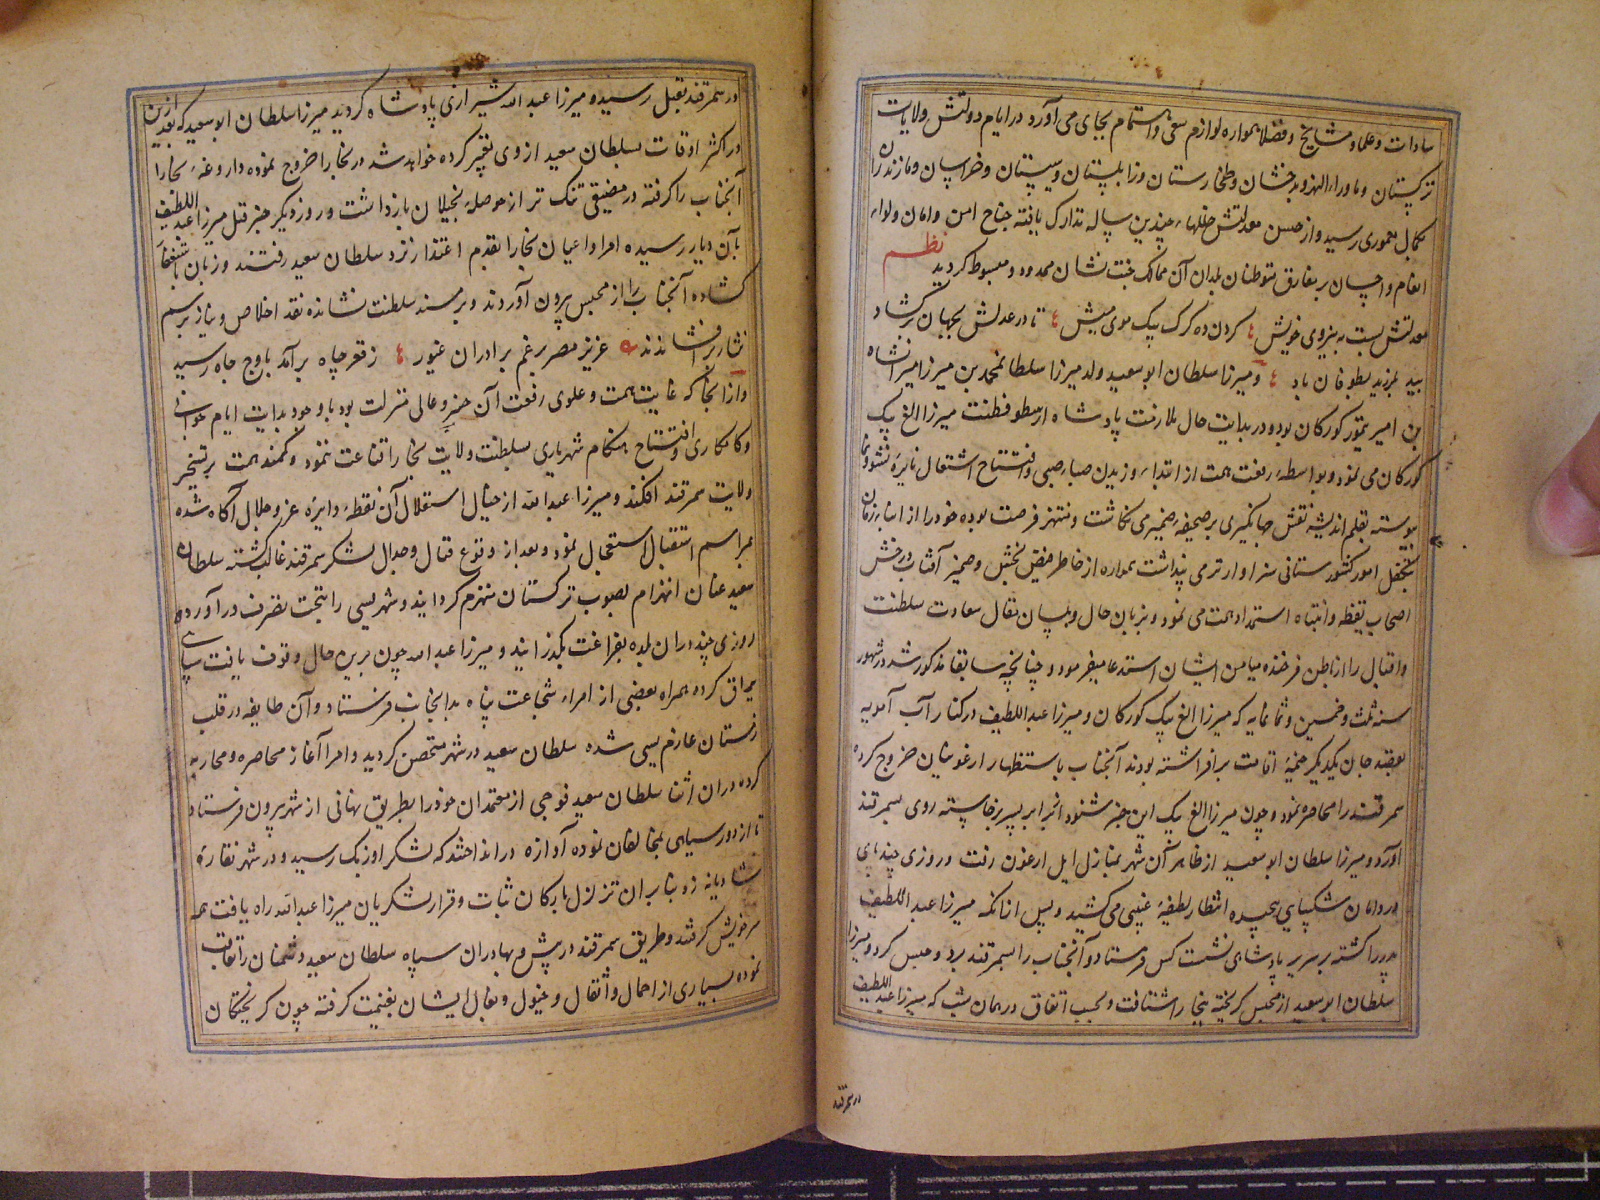 سادات و علما و مشایخ و فضلا همواره لوازم سعی و اهتمام بجای می آورد در ایام دولتش ولایات
ترکستان و ماوراء النهر و بدخشان و طخارستان و زابلستان و سیستان و خراسان و مازندران
بکمال معموری رسید و از حسن معدلتش خللهاء چندین ساله تدارک یافته جناح امن و امان و لواء
انعام و احسان بر مفارق متوطنان بلدان آن ممالک جنت نشان ممدود و مبسوط کردید نظم
معدلتش بست به نیروی خویش کردن ده کرک بیک موی میش تا در عدلش بجهان بر کشاد
بید نلرزید بطوفان باد و میرزا سلطان ابو سعید ولد میرزا سلطان محمد بن میرزا میرانشاه
بن امیر تیمور کورکان بود و در بدایت حال ملازمت پادشاه ارسطو فطنت میرزا الغ بیک
کورکان می نمود و بواسطهٔ رفعت همت از ابتداء وزیدن صباء صبی و افتتاح اشتعال نایرهٔ نشو و نما
پیوسته بقلم اندیشه نقش جهانکیری بر صحیفهٔ ضمیر می نکاشت و منتهز فرصت بوده خود را از ابناء زمان
بتکفل امور کشورستانی سزاوارتر می پنداشت همواره از خاطر فیض بخش و ضمیر آفتاب درخش
اصحاب یقظه و انتباه استمداد همت می نمود و بزبان حال و بلسان مقال سعادت سلطنت
و اقبال را از باطن فرخنده میامن ایشان استدعا میفرمود و چنانچه سابقا مذکور شد در شهور
سنه ثلث و خمسین و ثمانمایه که میرزا الغ بیک کورکان و میرزا عبد اللطیف در کنار آب آمویه
بقصد جان یکدیکر خیمهٔ اقامت برافراشته بودند آنجناب باستظهار ارغونیان خروج کرده
سمرقند را محاصره نمود و چون میرزا الغ بیک این خبر شنود از برابر پسر برخاسته روی بسمرقند
آورد و میرزا سلطان ابو سعید از ظاهر آن شهر بمنازل ایل ارغون رفت و روزی چند پای
در دامان شکیبایی پیچیده انتظار لطیفهٔ غیبی می کشید و پس از آنکه میرزا عبد اللطیف
پدر را کشته بر سریر پادشاهی نشست کس فرستاد و آنجناب را بسمرقند برد و حبس کرد و میرزا
سلطان ابو سعید از محبس کریخته ببخارا شتافت و بحسب اتفاق در همان شب که میرزا عبد اللطیف
در سمرقند
در سمرقند بقتل رسید و میرزا عبد الله شیرازی پادشاه کردید میرزا سلطان ابو سعید که بعد ازین
در اکثر اوقات بسلطان سعید از وی تعبیر کرده خواهد شد در بخارا خروج نموده داروغهٔ بخارا
آنجناب را کرفته در مضیقی تنک تر از حوصلهٔ بخیلان باز داشت و روز دیکر خبر قتل میرزا عبد اللطیف
بآن دیار رسیده امرا و اعیان بخارا بقدم اعتذار نزد سلطان سعید رفتند و زبان استغفار
کشاده آنجناب را از محبس بیرون آوردند و بر مسند سلطنت نشانده نقد اخلاص و نیاز برسم
نثار بر افشاندند عزیز مصر برغم برادران غیور ز قعر چاه برآمد باوج جاه رسید
و از آنجا که غایت همت و علوی رفعت آن خسرو عالی منزلت بود با وجود بدایت ایام جوانی
و کامکاری و افتتاح هنکام شهریاری بسلطنت ولایت بخارا قناعت ننمود و کمند همت بر تسخیر
ولایت سمرقند افکند و میرزا عبد الله از خیال استقلال آن نقطهٔ دایرهٔ عز و جلال آکاه شده
بمراسم استقبال استعجال نمود و بعد از وقوع قتال و جدال لشکر سمرقند غالب کشته سلطان
سعید عنان انهزام بصوب ترکستان منهزم کردانید و شهر یسی را بتحت تصرف درآورده
روزی چند در آن بلده بفراغت بکذرانید و میرزا عبد الله چون برین حال وقوف یافت سپاهی
یراق کرده همراه بعضی از امراء شجاعت پناه بدانجانب فرستاد و آن طایفه در قلب
زمستان عازم یسی شده سلطان سعید در شهر متحصن کردید و امرا آغاز محاصره و محاربه
کرده در آن اثنا سلطان سعید فوجی از معتمدان خود را بطریق نهانی از شهر بیرون فرستاد
تا از دور سیاهی بمخالفان نموده آوازه در انداختند که لشکر اوزبک رسید و در شهر نقارهٔ
شادیانه زد بنابر آن تزلزل بارکان ثبات و قرار لشکریان میرزا عبد الله راه یافت همه
سر خویش کرفتند و طریق سمرقند در پیش و بهادران سپاه سلطان سعید دشمنان را تعاقب
نموده بسیاری از احمال و اثقال و خیول و بغال ایشان بغنیمت کرفته چون کریختکان